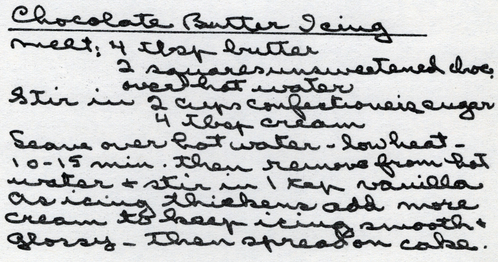 Chocolate Butter Icing
melt: 4 tbsp butter
2 squares unsweetened choc
over hot water
Stir in 2 cups confectioneis sugar
4 tbsp cream
Leave over hot water - low heat -
10-15 min. then remove from hot
water + stir in 1 tsp vanilla
as icing thickens add more
cream to keep icing smooth +
glossy - then spread on cake.